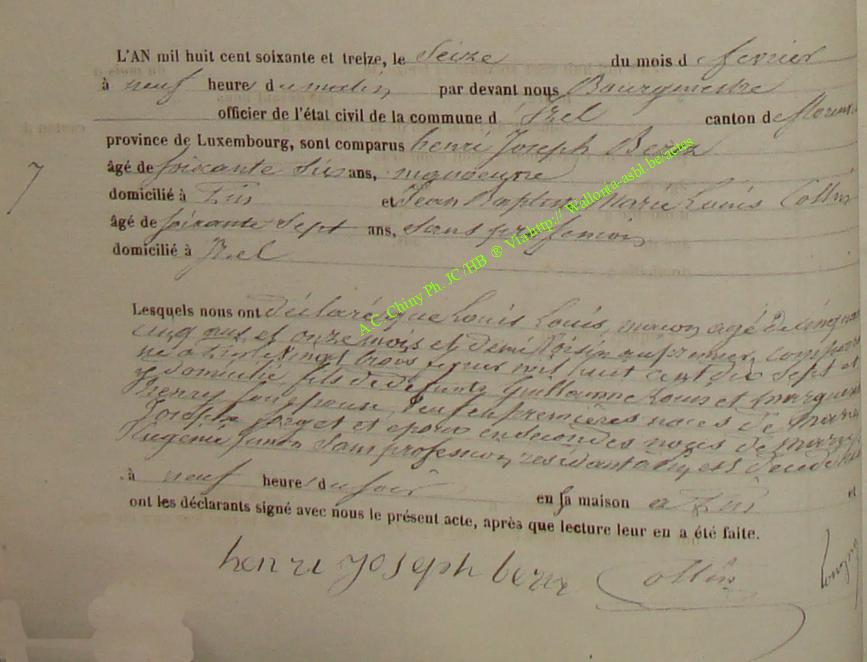 L'AN mil huit cent soixante et treize, le Seize du mois d fevrier
à neuf heure du matin par devant nous Bourgmestre
officier de l'état civil de la commune d' Izel canton de florenv
province de Luxembourg, sont comparus henri Joseph
7
âgé de soixante ans, manoeuvre
domicilié à et Jean Baptiste Marie Louis Collin
âgé de soixante Sept ans, Sans profession
domicilié à Izel
A.C. Chiny Ph. JC /HB ® Via http:// Wallonia-asbl.be/actes
Lesquels nous ont déclaré que Louis Louis, macon agé de cinquan
cinq ans et onze mois et demi Voisin au premier comparu
né à vingt trois fevrier mil huit cent dix Sept et
y domicilié, fils de defunts Guillaume Louis et Marguer
henry Son epouse, Veuf en premières noces de Marie
Joseph et epoux en Secondes noces de Marie
Eugénie Sans profession, residant à
à neuf heure du Soir en sa maison a et
ont les déclarants signé avec nous le présent acte, après que lecture leur en a été faite.
henri joseph Collin